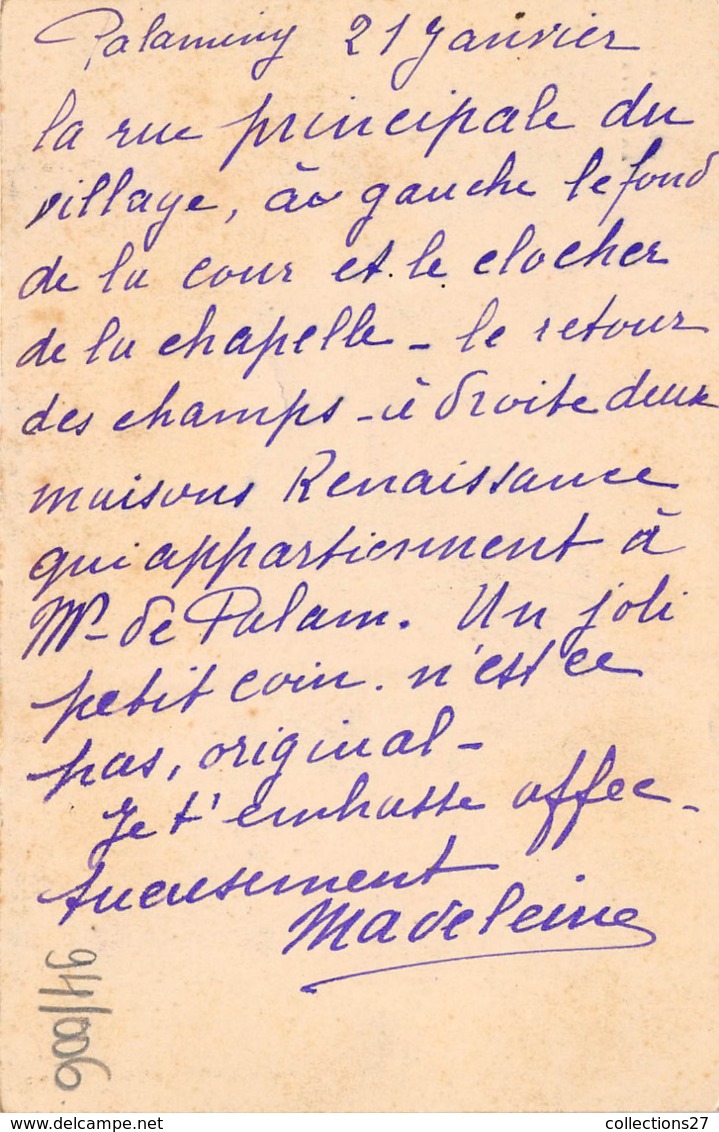 Palaminy 21 Janvier
la rue principale du
village, à gauche le fond
de la cour et le clocher
de la chapelle - le retour
des champs - à droite deux
maisons Renaissance
qui appartiennent à
Mr de Palam. Un joli
petit coin. n'est ce
pas, original -
Je t'embrasse affec-
tueusement
Madeleine
900/46
collections27